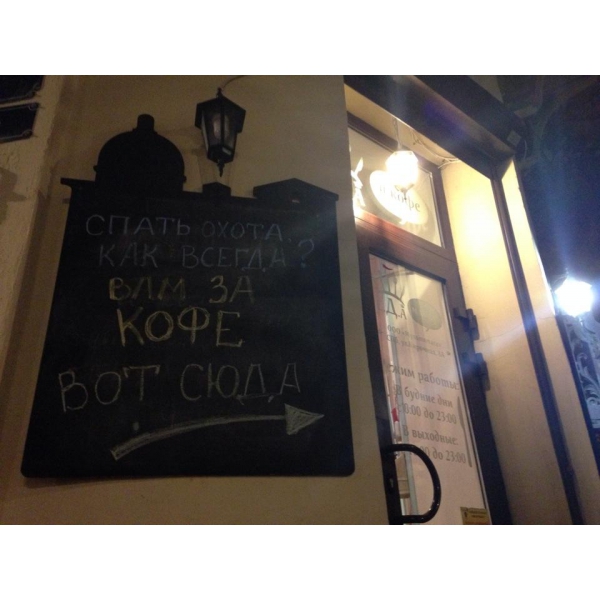 СПАТЬ ОХОТА,
КАК ВСЕГДА?
ВАМ ЗА
КОФЕ
ВОТ СЮДА
и кофе
жим работы:
В будние дни
00 до 23:00
В выходные:
00 до 23:00